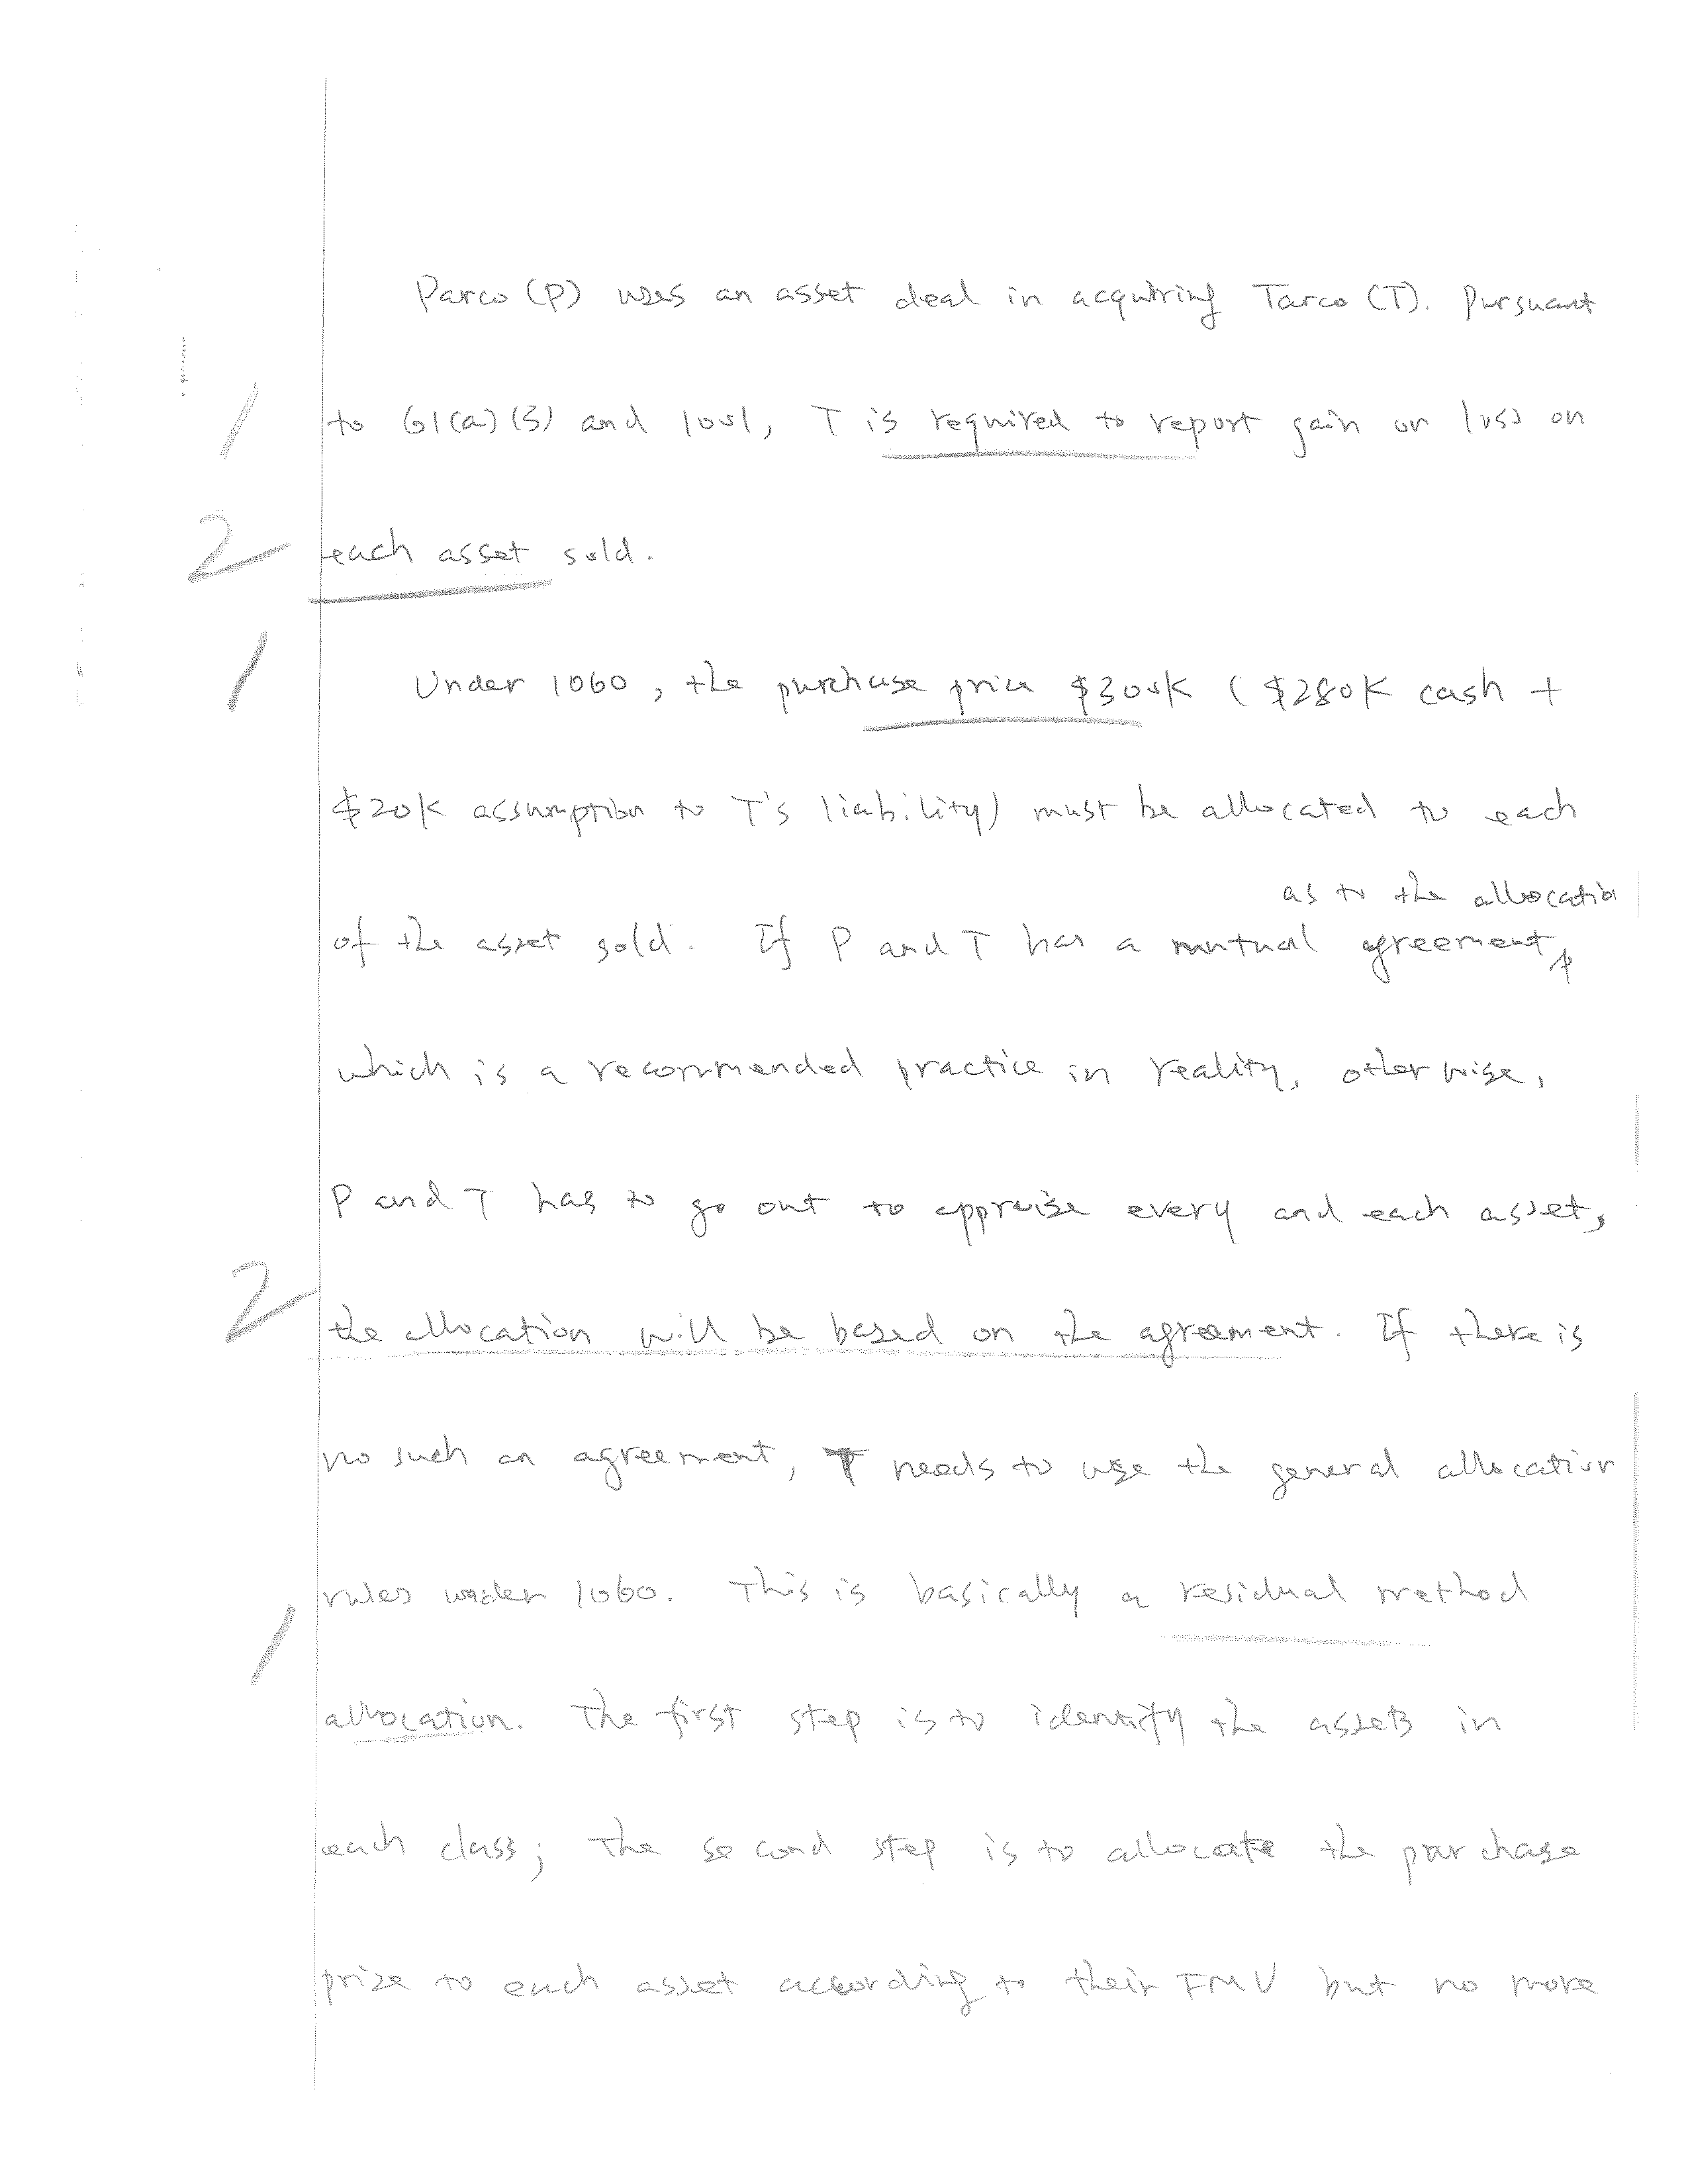 Parco (P) uses an asset deal in acquiring Tarco (T). Pursuant
1 to 61(a)(3) and 1001, T is required to report gain or loss on
2 each asset sold.
1 Under 1060, the purchase price $300K ($280K cash +
$20K assumption to T's liability) must be allocated to each
as to the allocation
of the asset sold. If P and T has a mutual agreement,
which is a recommended practice in reality, otherwise,
P and T has to go out to appraise every and each asset,
2 the allocation will be based on the agreement. If there is
no such an agreement, T needs to use the general allocation
1 rules under 1060. This is basically a residual method
allocation. The first step is to identify the assets in
each class; The second step is to allocate the purchase
prize to each asset according to their FMV but no more